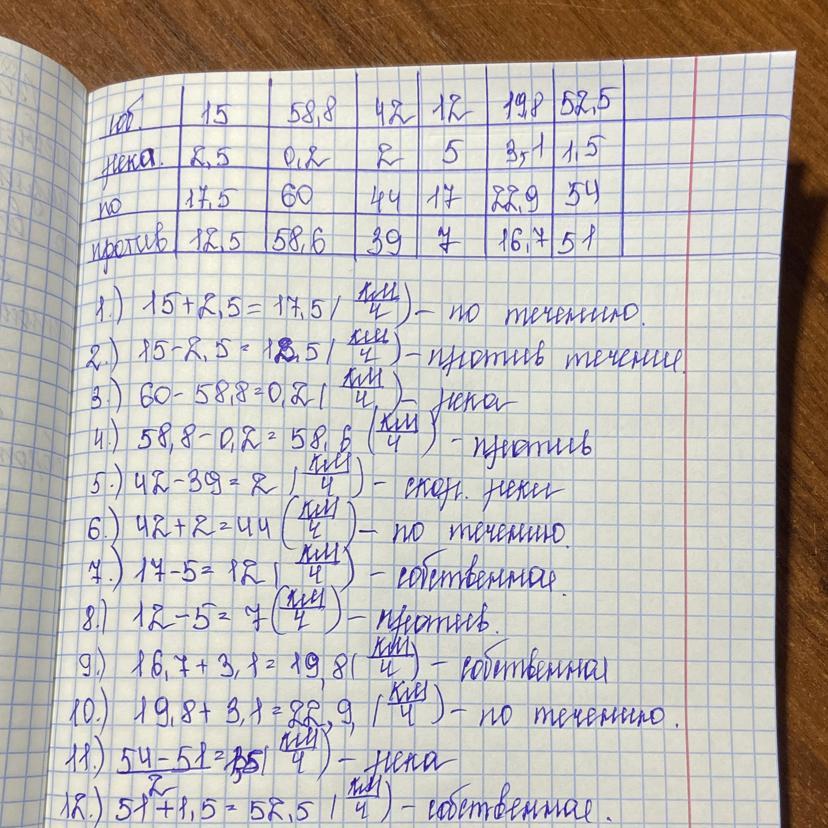 соб. 15 58,8 42 12 19,8 52,5
река. 2,5 0,2 2 5 3,1 1,5
по 17,5 60 44 17 22,9 54
против 12,5 58,6 39 7 16,7 51
1.) 15+2,5=17,5(км/ч)-по течению.
2.) 15-2,5=12,5(км/ч)-против течение.
3.) 60-58,8=0,2(км/ч)-река
4.) 58,8-0,2=58,6(км/ч)-против
5.) 42-39=2(км/ч)-скор. реки
6.) 42+2=44(км/ч)-по течению.
7.) 17-5=12(км/ч)-собственная.
8.) 12-5=7(км/ч)-против.
9.) 16,7+3,1=19,8(км/ч)-собственная
10.) 19,8+3,1=22,9(км/ч)-по течению.
11.) (54-51)/2=1,5(км/ч)-река
12.) 51+1,5=52,5(км/ч)-собственная.